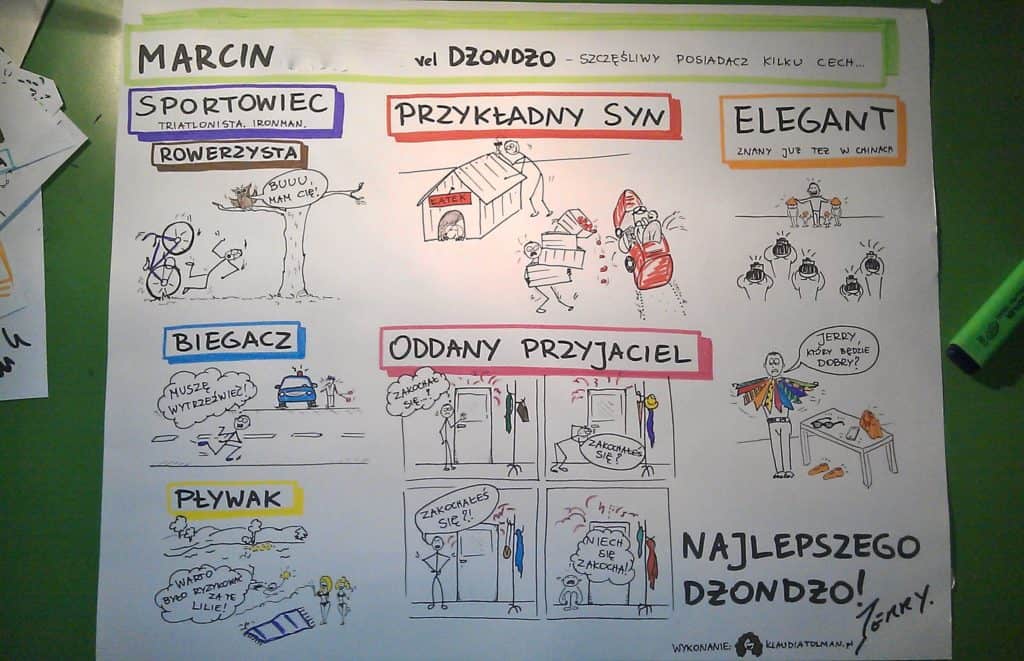 MARCIN vel DZONDZO – SZCZĘŚLIWY POSIADACZ KILKU CECH...
SPORTOWIEC
TRIATLONISTA. IRONMAN.
ROWERZYSTA
BUUU,
MAM CIĘ!
PRZYKŁADNY SYN
ŁATEK
ELEGANT
ZNANY JUŻ TEŻ W CHINACH
BIEGACZ
MUSZĘ
WYTRZEŹWIEĆ!
Z
PŁYWAK
WARTO
BYŁO RYZYKOWAĆ
ZA TE
LILIE!
ODDANY PRZYJACIEL
ZAKOCHAŁ
SIĘ..!
ZAKOCHAŁEŚ
SIĘ?
ZAKOCHAŁEŚ
SIĘ?!
NIECH
SIĘ
ZAKOCHA!
JERRY,
KTÓRY BĘDZIE
DOBRY?
NAJLEPSZEGO
DZONDZO!
JERRY.
WYKONANIE: KLAUDIATOLMAN.pl